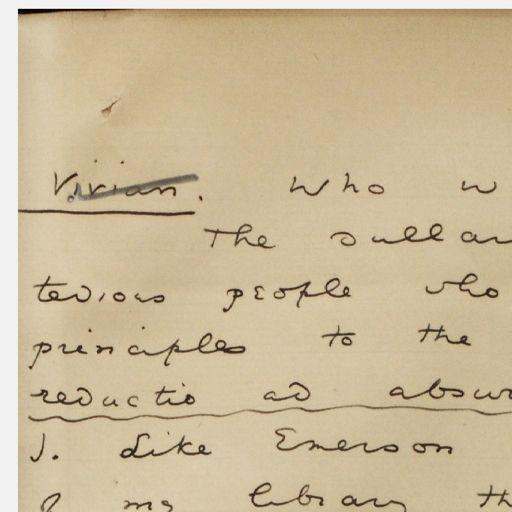 Vivian. Who w
The dullar
tedious people who
principles to the
reductio ad absur
J. Like Emerson
my library th